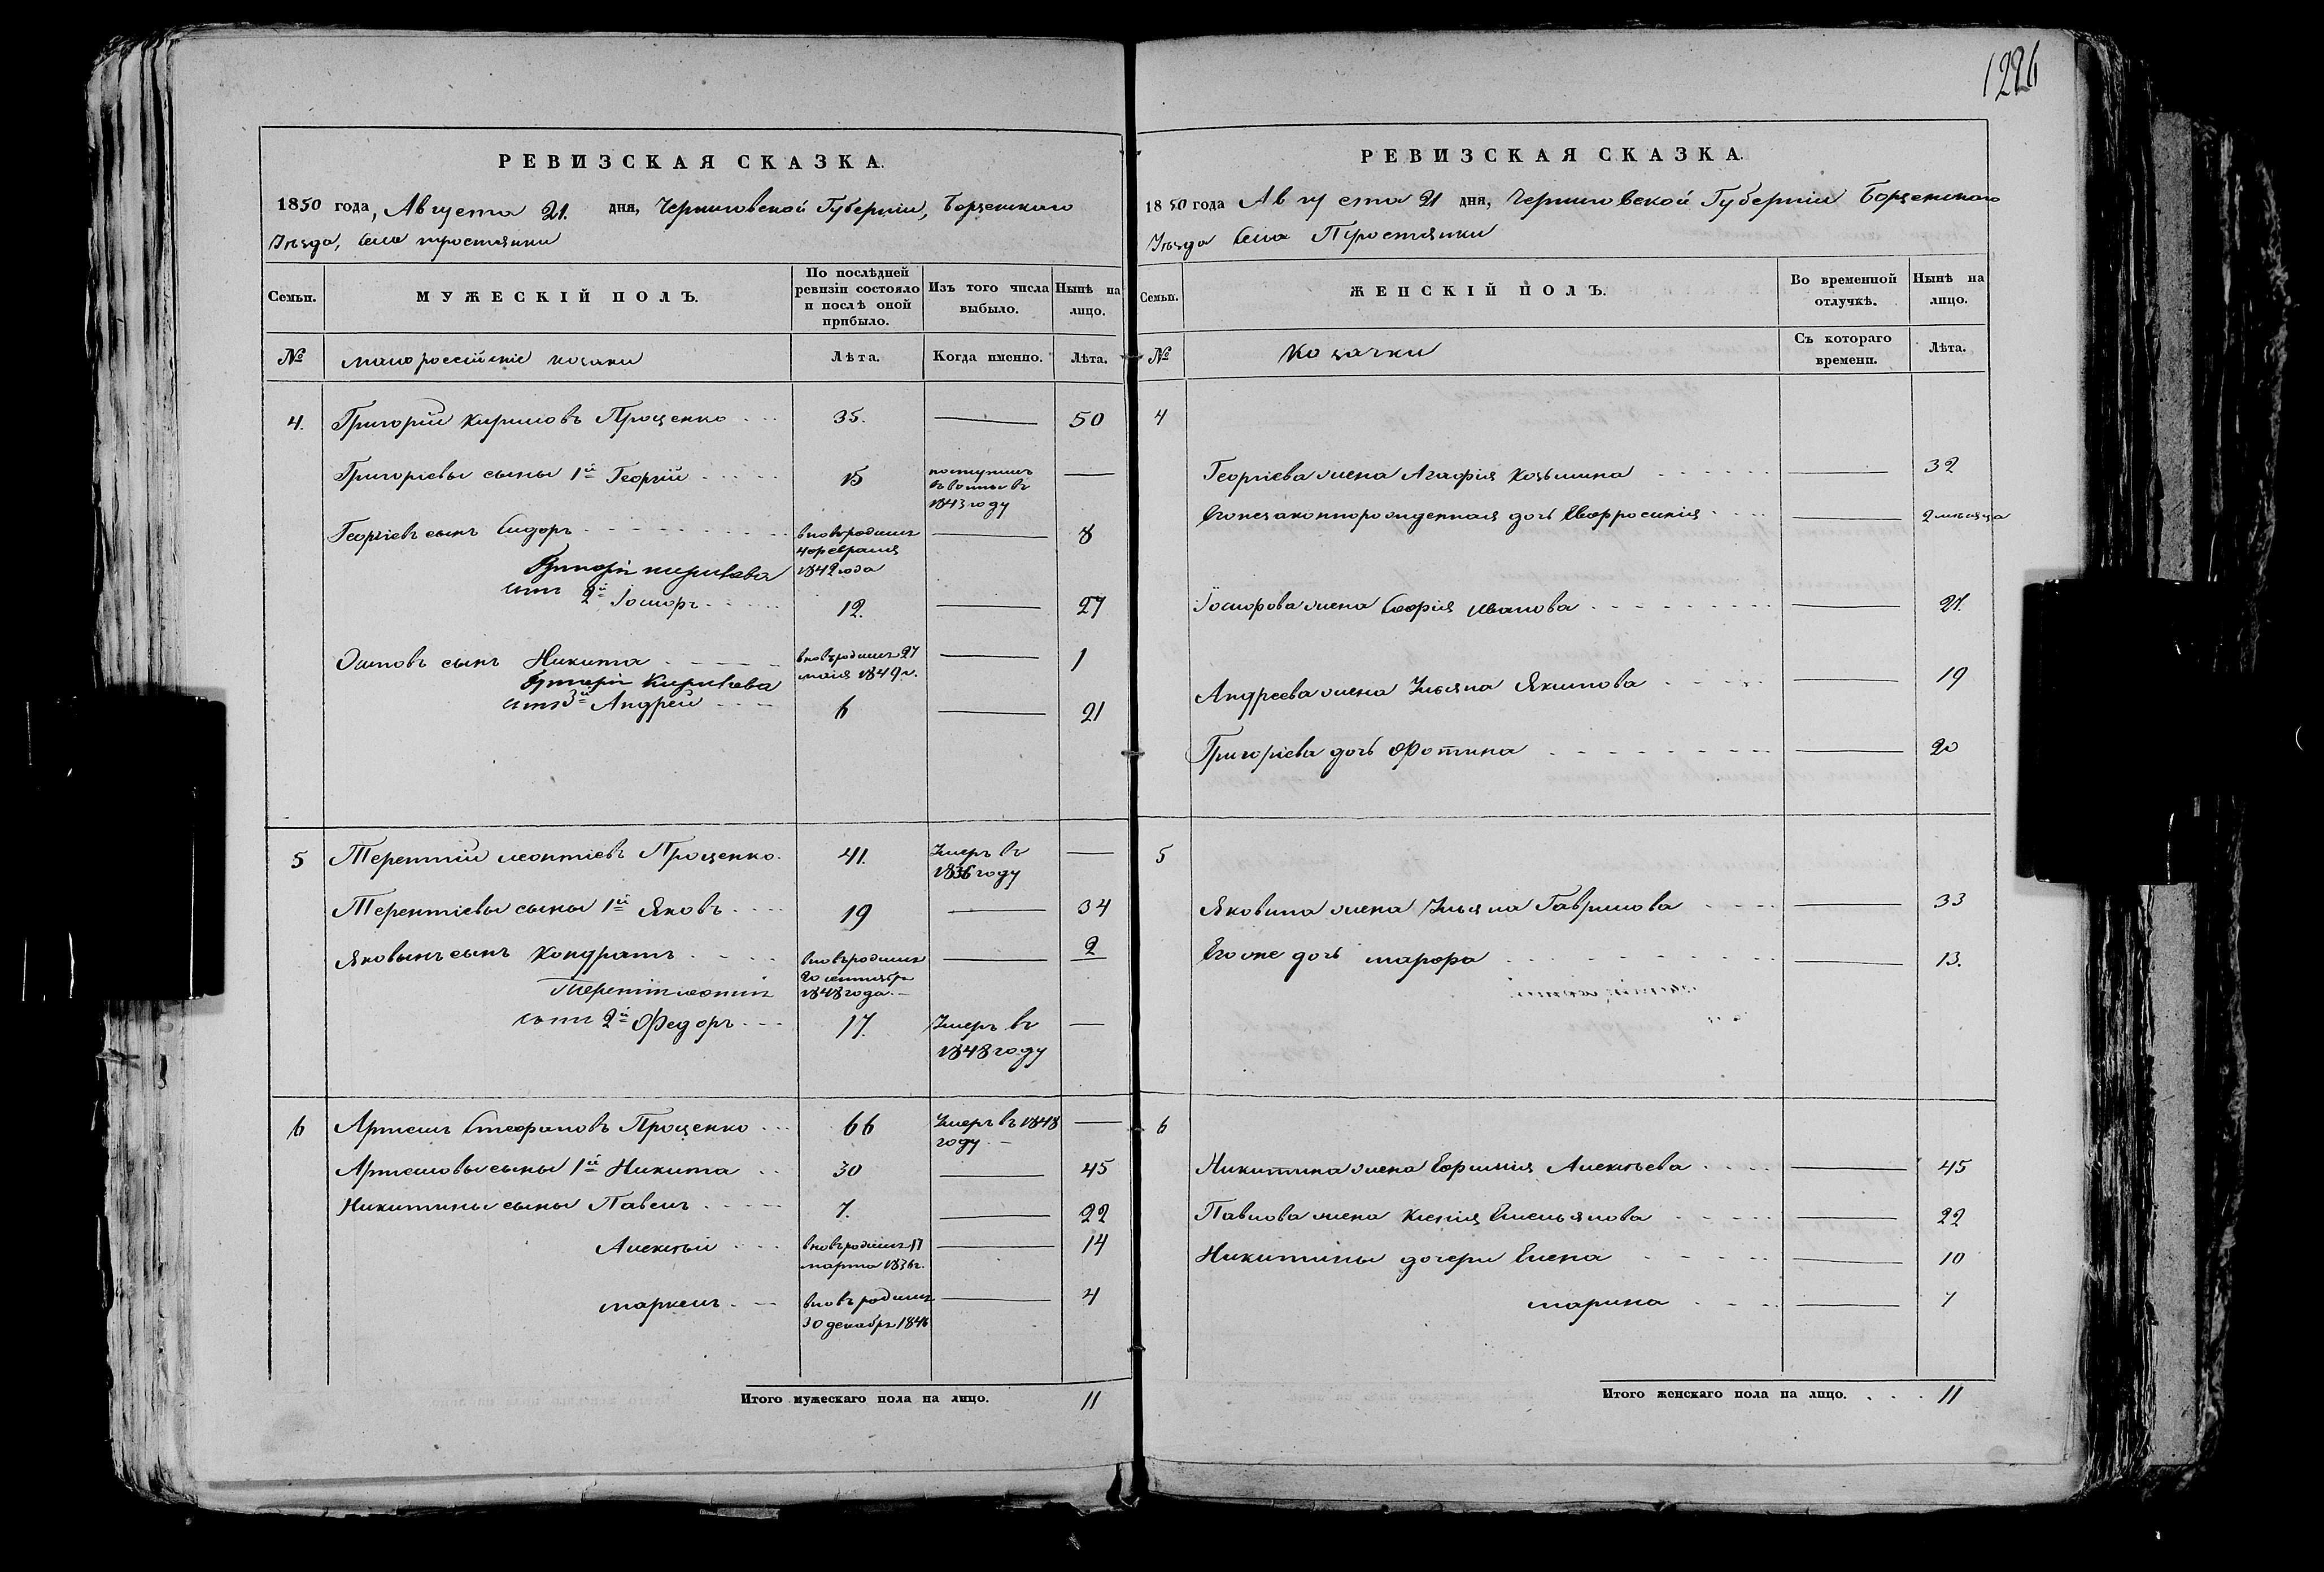 1226
РЕВИЗСКАЯ СКАЗКА.
1850 года, Августа 21. дня, Черниговской Губернiи, Борзенскаго
Уѣзда, села тростянки
Семьи.
МУЖЕСКІЙ ПОЛЪ.
По послѣдней ревизіи состояло и послѣ оной прибыло.
Изъ того числа выбыло.
Нынѣ на лицо.
№
малороссійскіе козаки
Лѣта.
Когда именно.
Лѣта.
4. Григорій Кириловъ Проценко 35. — 50
Григоріевы сыны 1й Георгій 15 поступилъ въ 1843 году —
Георгіевъ сынъ Сидоръ вновьродился 4 февраля 1842 года — 8
Григорія Кирилова
сынъ 2й 12. — 27
сынъ Никита вновьродился 27 маія 1849 г. — 1
Григорія Кирилова
сынъ 3й Андрей 6 — 21
5 Терентій Леонтіевъ Проценко. 41. Умеръ въ 1836 году —
Терентіевы сыны 1й Яковъ 19 — 34
Яковынъ сынъ Кондратъ вновьродился 20 сентября 1848 года — 2
Терентія Леонтія
сынъ 2й Федоръ 17. Умеръ въ 1848 году —
6 Артемъ Стефановъ Проценко 66 Умеръ въ 1848 году. —
Артемовы сыны 1й Никита 30 — 45
Никитины сыны Павелъ 7. — 22
Алексѣй вновьродился 17 марта 1836 г. — 14
маркелъ вновьродился 30 декабря 1846 — 4
Итого мужескаго пола на лицо. 11
РЕВИЗСКАЯ СКАЗКА.
1850 года Августа 21 дня, Черниговской Губерніи Борзенскаго
Уѣзда Села Тростянки
Семьи.
ЖЕНСКІЙ ПОЛЪ.
Во временной отлучкѣ.
Нынѣ на лицо.
№
Козачки
Съ котораго времени.
Лѣта.
4
Георгіева жена Агафія Козьмина — 32
Егонезаконнорожденная дочь Евфросинія — 2 мѣсяца
жена Софія Иванова — 27.
Андреева жена Ульяна Якимова — 19
Григоріева дочь Фотина — 20
5
Яковина жена Ульяна Гаврилова — 33
Егоже дочь марфа — 13.
6
Никитина жена Ефимія Алексѣева — 45
Павлова жена Ксенія Емельянова — 22
Никитины дочери Елена — 10
марина — 7
Итого женскаго пола на лицо. 11